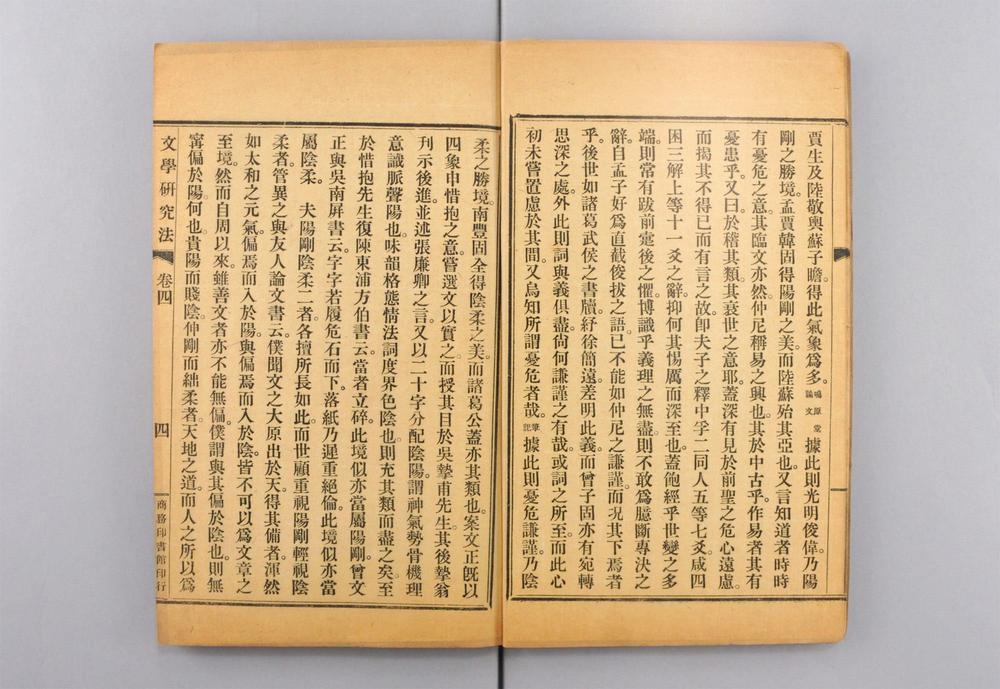 賈生及陸敬輿蘇子瞻。得此氣象爲多。鳴原堂論文據此則光明俊偉。乃陽
剛之勝境。孟賈韓固得陽剛之美。而陸蘇殆其亞也。又言知道者時時
有憂危之意。其臨文亦然。仲尼稱易之興也。其於中古乎。作易者其有
憂患乎。又曰於稽其類。其衰世之意耶。蓋深有見於前聖之危心遠慮。
而揭其不得已而有言之故。卽夫子之釋中孚二同人五等七爻。咸四
困三解上等十一爻之辭。抑何其惕厲而深至也。蓋飽經乎世變之多
端。則常有跋前疐後之懼。博識乎義理之無盡。則不敢爲臆斷專決之
辭。自孟子好爲直截俊拔之語。已不能如仲尼之謙謹。而况其下焉者
乎。後世如諸葛武侯之書牘。紆徐簡遠。差明此義。而曾子固亦有宛轉
思深之處。外此則詞與義俱盡。尙何謙謹之有哉。或詞之所至。而此心
初未嘗置慮於其間。又烏知所謂憂危者哉。筆記據此則憂危謙謹。乃陰
柔之勝境。南豐固全得陰柔之美。而諸葛公蓋亦其類也。案文正旣以
四象申惜抱之意。嘗選文以實之。而授其目於吳摯甫先生。其後摯翁
刊示後進。並述張廉卿之言。又以二十字分配陰陽。謂神氣勢骨機理
意識脈聲陽也。味韻格態情法詞度界色陰也。則充其類而盡之矣。至
於惜抱先生復陳東浦方伯書云。當者立碎。此境似亦當屬陽剛。曾文
正與吳南屏書云。字字若履危石而下。落紙乃遲重絕倫。此境似亦當
屬陰柔。　夫陽剛陰柔二者。各擅所長如此。而世顧重視陽剛。輕視陰
柔者。管異之與友人論文書云。僕聞文之大原出於天。得其備者。渾然
如太和之元氣。偏焉而入於陽。與偏焉而入於陰。皆不可以爲文章之
至境。然而自周以來。雖善文者亦不能無偏。僕謂與其偏於陰也。則無
甯偏於陽。何也。貴陽而賤陰。伸剛而絀柔者。天地之道。而人之所以爲
文學研究法
卷四
四
商務印書館印行